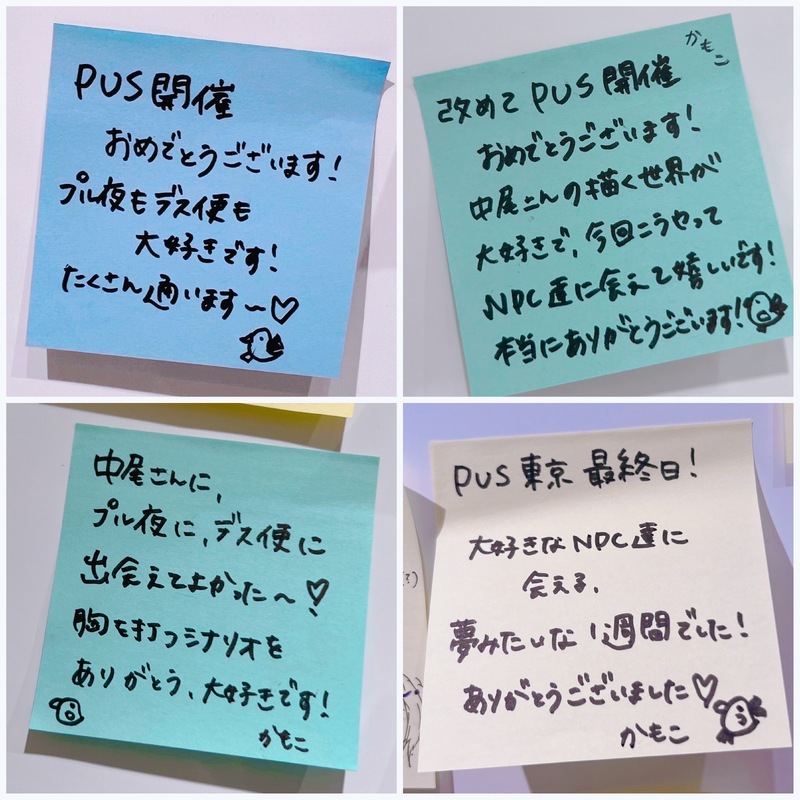 PUS開催
おめでとうございます!
プル夜もデス便も
大好きです!
たくさん通います〜♡
かもこ
改めてPUS開催
おめでとうございます!
中尾さんの描く世界が
大好きで、今回こうやって
NPC達に会えて嬉しいです!
本当にありがとうございます!
中尾さんに、
プル夜に、デス便に
出会えてよかった〜!
胸を打つシナリオを
ありがとう、大好きです!
かもこ
PUS東京 最終日!
大好きなNPC達に
会える、
夢みたいな1週間でした!
ありがとうございました♡
かもこ